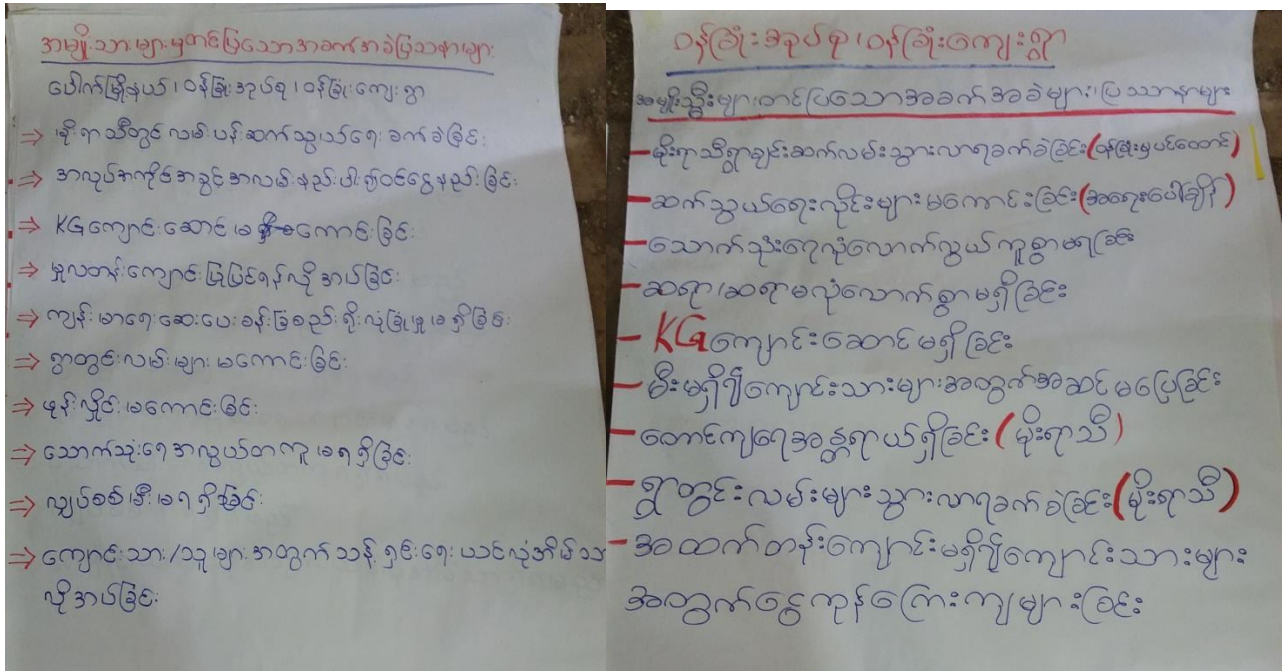 အမျိုးသားများမှတင်ပြသောအခက်အခဲပြဿနာများ
ပေါက်မြို့နယ်၊ ဝန်ခြုံးအုပ်စု၊ ဝန်ခြုံးကျေးရွာ
⇒ မိုးရာသီတွင် လမ်းပန်းဆက်သွယ်ရေး ခက်ခဲခြင်း
⇒ အလုပ်အကိုင်အခွင့်အလမ်းနည်းပါး၍ဝင်ငွေနည်းခြင်း
⇒ KG ကျောင်းဆောင် မကောင်းခြင်း
⇒ မူလတန်းကျောင်းပြုပြင်ရန်လိုအပ်ခြင်း
⇒ ကျန်းမာရေးဆေးပေးခန်းခြံစည်းရိုးလုံခြုံမှုမရှိခြင်း
⇒ ရွာတွင်းလမ်းများ မကောင်းခြင်း
⇒ ဖုန်းလှိုင်းမကောင်းခြင်း
⇒ သောက်သုံးရေအလွယ်တကူမရရှိခြင်း
⇒ လျှပ်စစ်မီးမရရှိခြင်း
⇒ ကျောင်းသား/သူများအတွက်သန့်ရှင်းရေးယင်လုံအိမ်သာ
လိုအပ်ခြင်း
ဝန်ခြုံးအုပ်စု၊ ဝန်ခြုံးကျေးရွာ
အမျိုးသ္မီးများတင်ပြသောအခက်အခဲများ၊ ပြဿနာများ
- မိုးရာသီရွာချင်းဆက်လမ်းသွားလာရခက်ခဲခြင်း(ဝန်ခြုံးမှပင်တောင်)
- ဆက်သွယ်ရေးလိုင်းများမကောင်းခြင်း(အရေးပေါ်ချိန်)
- သောက်သုံးရေလုံလောက်လွယ်ကူစွာမရခြင်း
- ဆရာ၊ ဆရာမလုံလောက်စွာမရှိခြင်း
- KG ကျောင်းဆောင်မရှိခြင်း
- မီးမရှိ၍ကျောင်းသားများအတွက်အဆင်မပြေခြင်း
- တောင်ကျရေအန္တရာယ်ရှိခြင်း(မိုးရာသီ)
- ရွာတွင်းလမ်းများသွားလာရခက်ခဲခြင်း(မိုးရာသီ)
- အထက်တန်းကျောင်းမရှိ၍ကျောင်းသားများ
အတွက်ငွေကုန်ကြေးကျများခြင်း